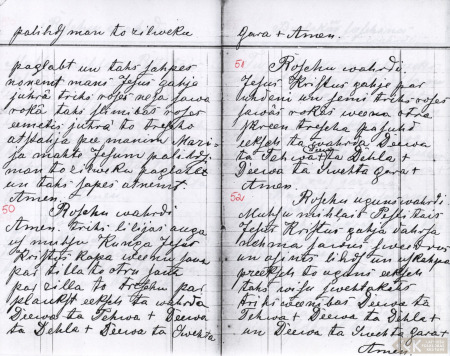 palihds man to zilweku
paglabt un tahs sahpes
nonemt mans Jesus gahja
juhrā trihs rojes nesa sawa
rokā tahs slimibas rojes
eemetis juhrā to trescho
atstahja pee manim Mari-
ja mahte Jesum palihds
man to zilweku paglabt
un tahs sapes atnemt
Amen.
50
Roschu wahrdi
Amen. Trihs lilijas auga
us muhsu Kunga Jesus
Kristus kapa weenu sauz
par zilla to otru sauz
par zilla to treschu par
plaukst eeksch ta wahrda
Deewa ta Tehwa + Deewa
ta Dehla + Deewa ta Swehta
gara + Amen.
51
Roschu wahrdi.
Jesus Kristus gahja par
uhdeni un nemi trihs rojes
sawās rokās weena otra
skreen trescha pasuhd
eeksch ta wahrda Deewa
ta Tehwa + ta Dehla +
Deewa ta Swehta gara +
Amen.
52
Roschu uguns wahrdi.
Muhsu mihlais Pestitais
Jesus Kristus gahja dahrsa
nehma sawus swedrus
un
preeksch to uguni eeksch
tahs wissu swehtakahs
trihs weenibas Deewa ta
Tehwa + Deewa ta Dehla +
un Deewa ta Swehta gara +
Amen.